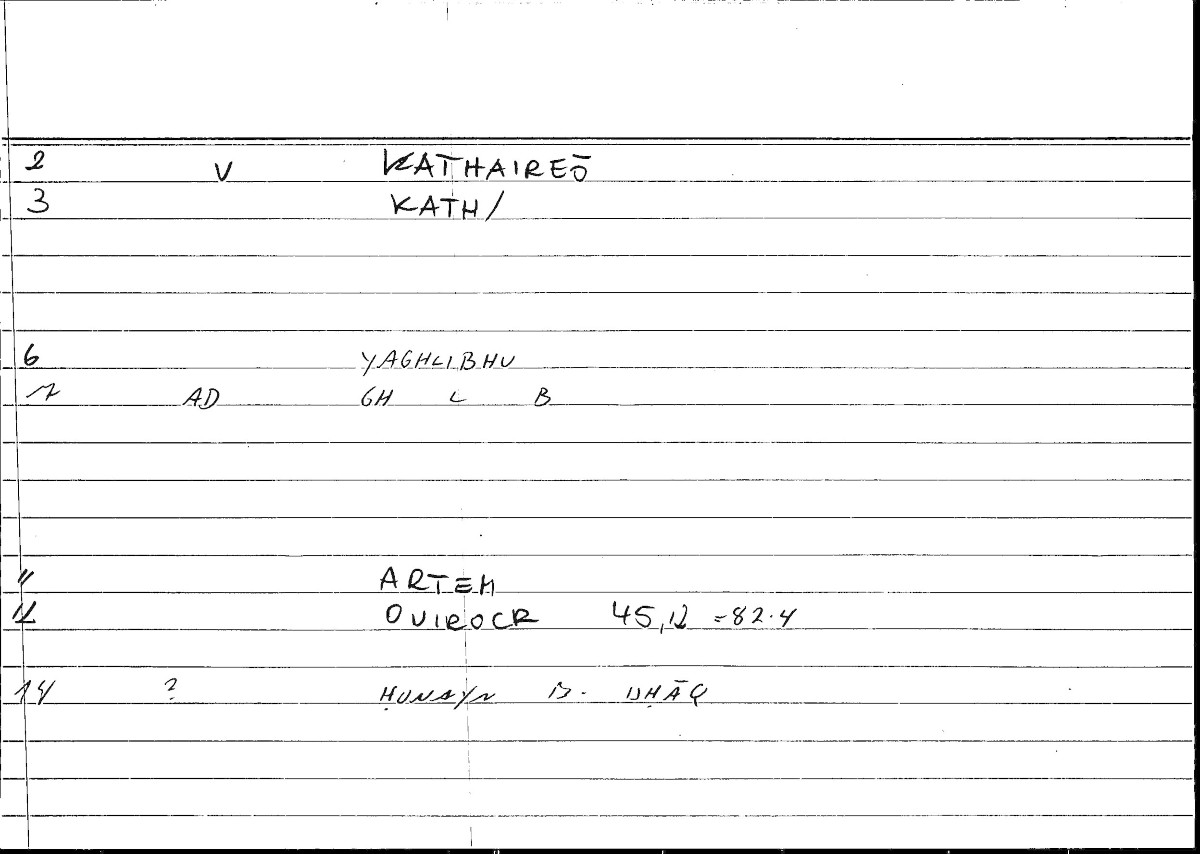 2 V KATHAIREŌ
3 KATH/
6 YAGHLIBHU
7 AD GH L B
11 ARTEM
12 OVIROCR 45,12 =82.4
14 ? ḤUNAYN B.